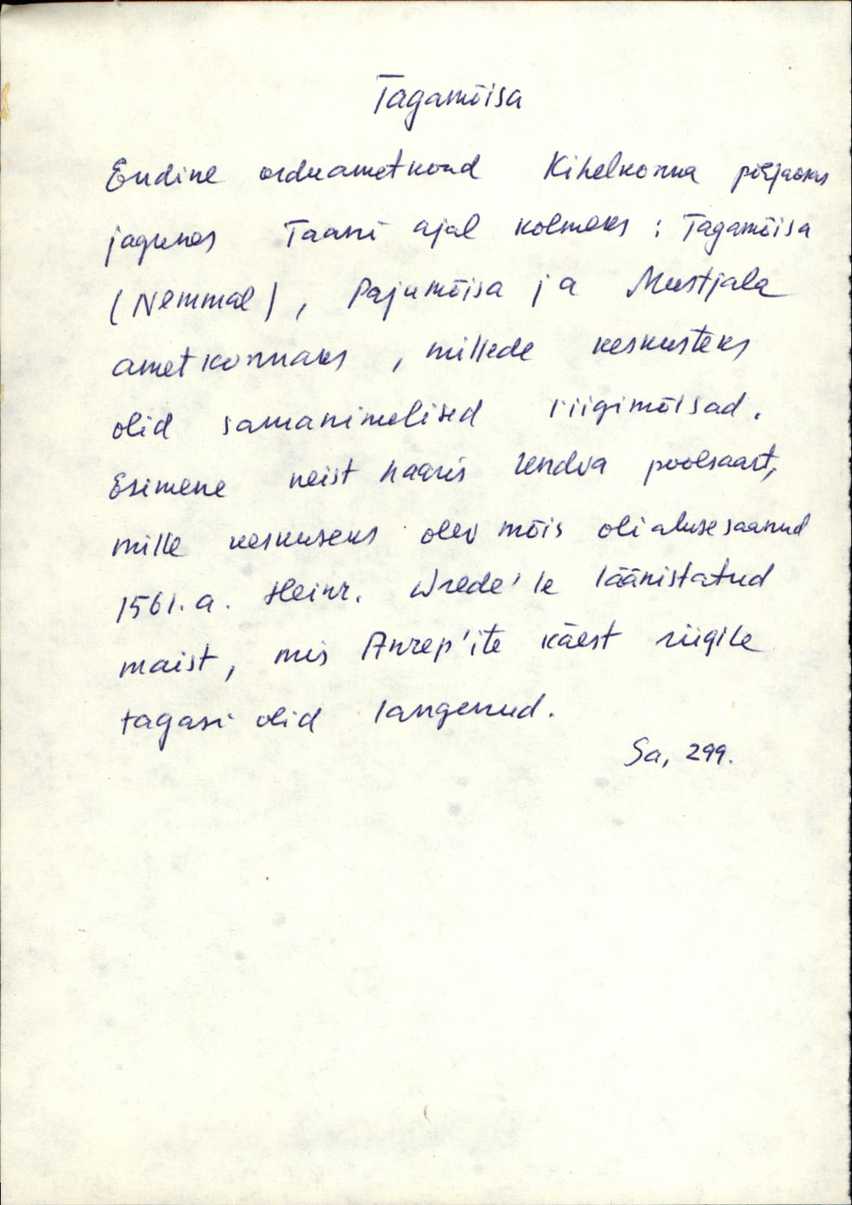 Tagamõisa
Endine orduametkond Kihelkonna põhjaosas
jagunes Taani ajal kolmeks : Tagamõisa
(Nemmal), Pajumõisa ja Mustjala
ametkonnaks , millede keskusteks
olid samanimelised riigimõisad.
Esimene neist haaris Undva poolsaart,
mille keskuseks olev mõis oli aluse saanud
1561.a. Heinr. Wrede'le läänistatud
maist, mis Anrep'ite käest riigile
tagasi olid langenud.
Sa, 299.